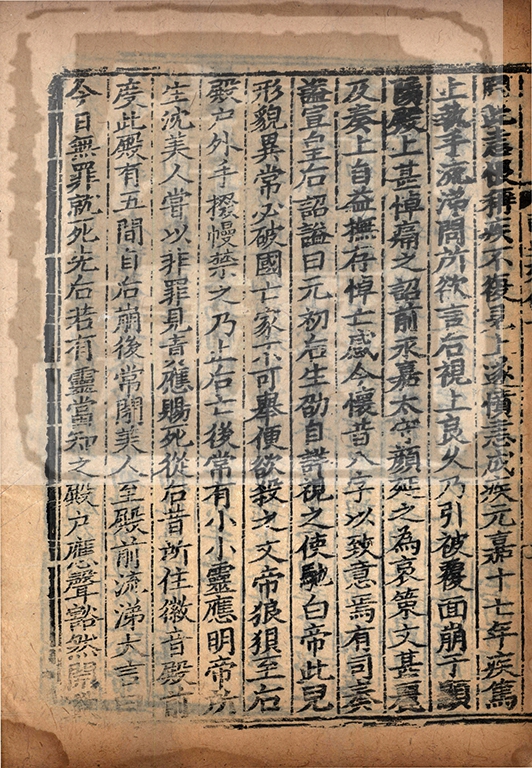 因此恚恨稱疾不復見上遂憤恚成疾元嘉十七年疾篤
上執手流涕問所欲言后視上良久乃引被覆面崩于顯
陽殿上甚悼痛之詔前永嘉太守顔延之為哀策文甚麗
及奏上自益撫存悼亡感今懷昔八字以致意焉有司奏
謚宣皇后詔謚曰元初后生劭自詳視之使馳白帝此兒
形貌異常必破國亡家不可舉便欲殺之文帝狼狽至后
殿户外手撥幔禁之乃止后亡後常有小小靈應明帝所
生沈美人嘗以非罪見責應賜死從后昔所住徽音殿前
度此殿有五間自后崩後常閉美人至殿前流涕大言曰
今日無罪就死先后若有靈當知之殿户應聲豁然開